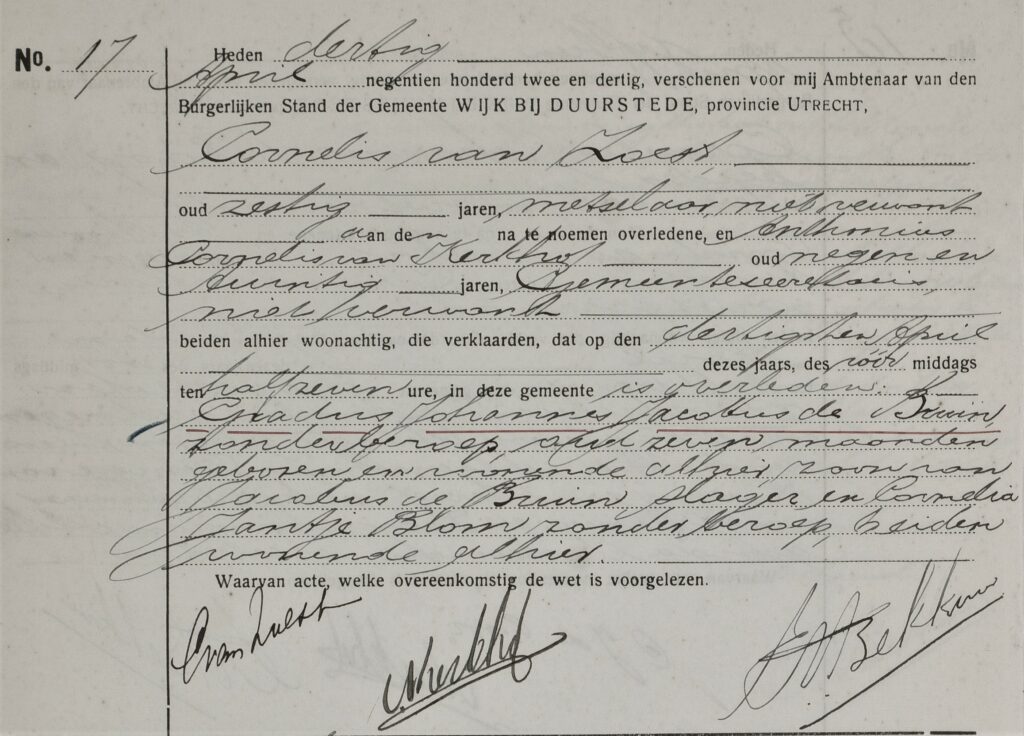 No. 17 Heden dertig
April negentien honderd twee en dertig, verschenen voor mij Ambtenaar van den
Burgerlijken Stand der Gemeente WIJK BIJ DUURSTEDE, provincie UTRECHT,
Cornelis van Zoest,
oud zestig jaren, metselaar, niet verwant
aan den na te noemen overledene, en Anthonius
Cornelis van Kerkhof oud negen en
twintig jaren, Gemeentesecretaris,
niet verwant
beiden alhier woonachtig, die verklaarden, dat op den dertigsten April
dezes jaars, des voor middags
ten half zeven ure, in deze gemeente is overleden:
Gradus Johannes Jacobus de Bruin,
zonder beroep, oud zeven maanden
geboren en wonende alhier, zoon van
Jacobus de Bruin, slager en Cornelia
Jantje Blom zonder beroep, beiden
wonende alhier.
Waarvan acte, welke overeenkomstig de wet is voorgelezen.
C van Zoest